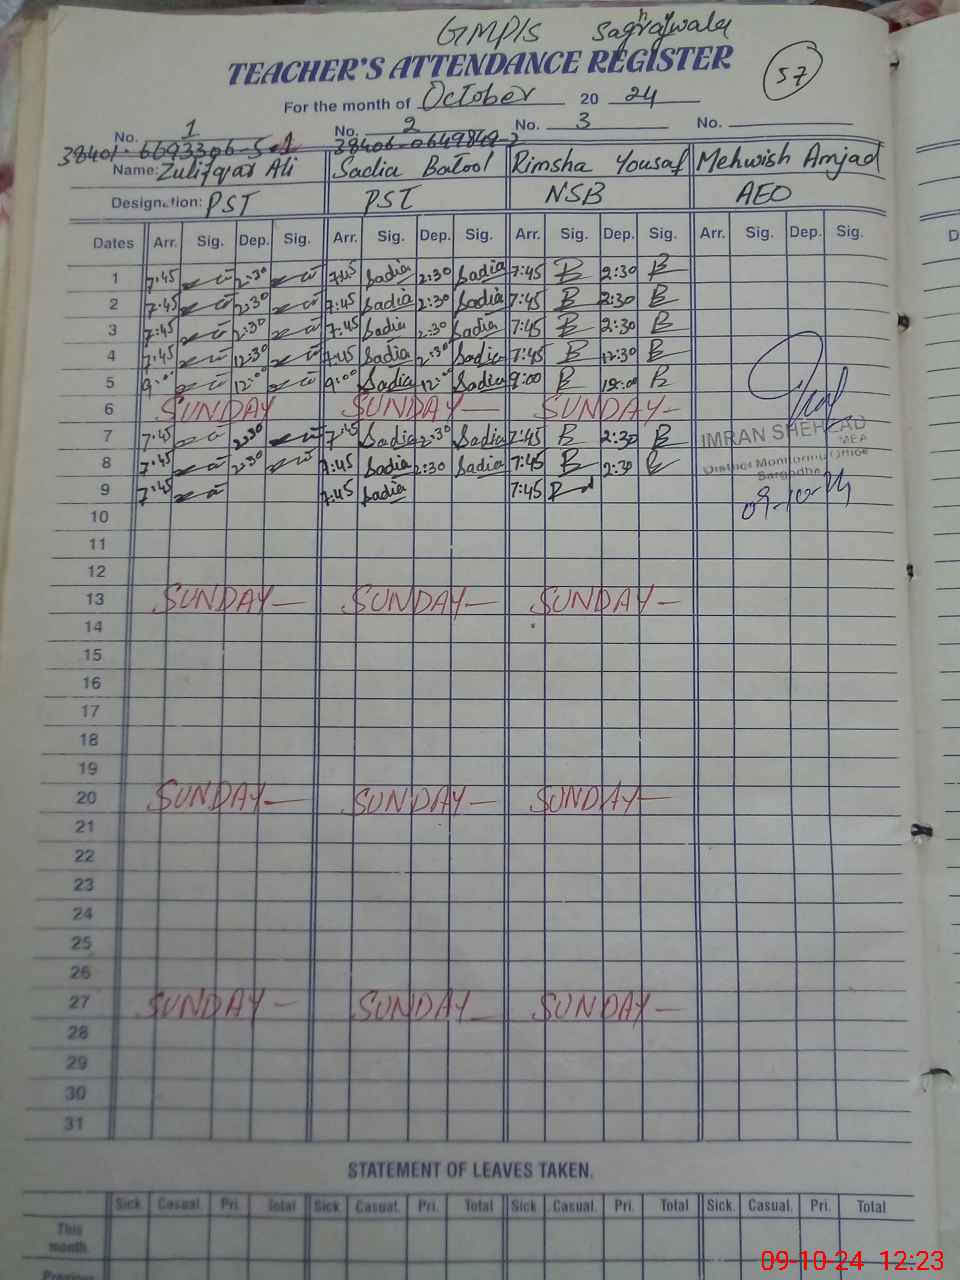 GMPIS Saghrajwala
TEACHER'S ATTENDANCE REGISTER
57
For the month of October 20 24
No. 1 No. 2 No. 3 No.
Name: Zulifqar Ali Sadia Batool Rimsha Yousaf Mehwish Amjad
Designation: PST PST NSB AEO
Dates Arr. Sig. Dep. Sig. Arr. Sig. Dep. Sig. Arr. Sig. Dep. Sig. Arr. Sig. Dep. Sig.
1 7:45 2:30 7:45 Sadia 2:30 Sadia 7:45 2:30
2 7:45 2:30 7:45 Sadia 2:30 Sadia 7:45 2:30
3 7:45 2:30 7:45 Sadia 2:30 Sadia 7:45 2:30
4 7:45 12:30 7:45 Sadia 2:30 Sadia 7:45 12:30
5 9:00 12:00 9:00 Sadia 12:00 Sadia 9:00 12:00
6 SUNDAY SUNDAY — SUNDAY -
7 7:45 2:30 7:45 Sadia 2:30 Sadia 7:45 2:30
IMRAN SHEHZAD
MEA
8 7:45 2:30 7:45 Sadia 2:30 Sadia 7:45 2:30
District Monitoring Office
Sargodha
9 7:45 7:45 Sadia 7:45
09-10-24
10
11
12
13 SUNDAY — SUNDAY — SUNDAY -
14
15
16
17
18
19
20 SUNDAY — SUNDAY — SUNDAY —
21
22
23
24
25
26
27 SUNDAY - SUNDAY - SUNDAY —
28
29
30
31
STATEMENT OF LEAVES TAKEN.
Sick Casual Pri. Total Sick Casual. Pri. Total Sick Casual. Pri. Total Sick. Casual. Pri. Total
This
month
Previous
09-10-24 12:23